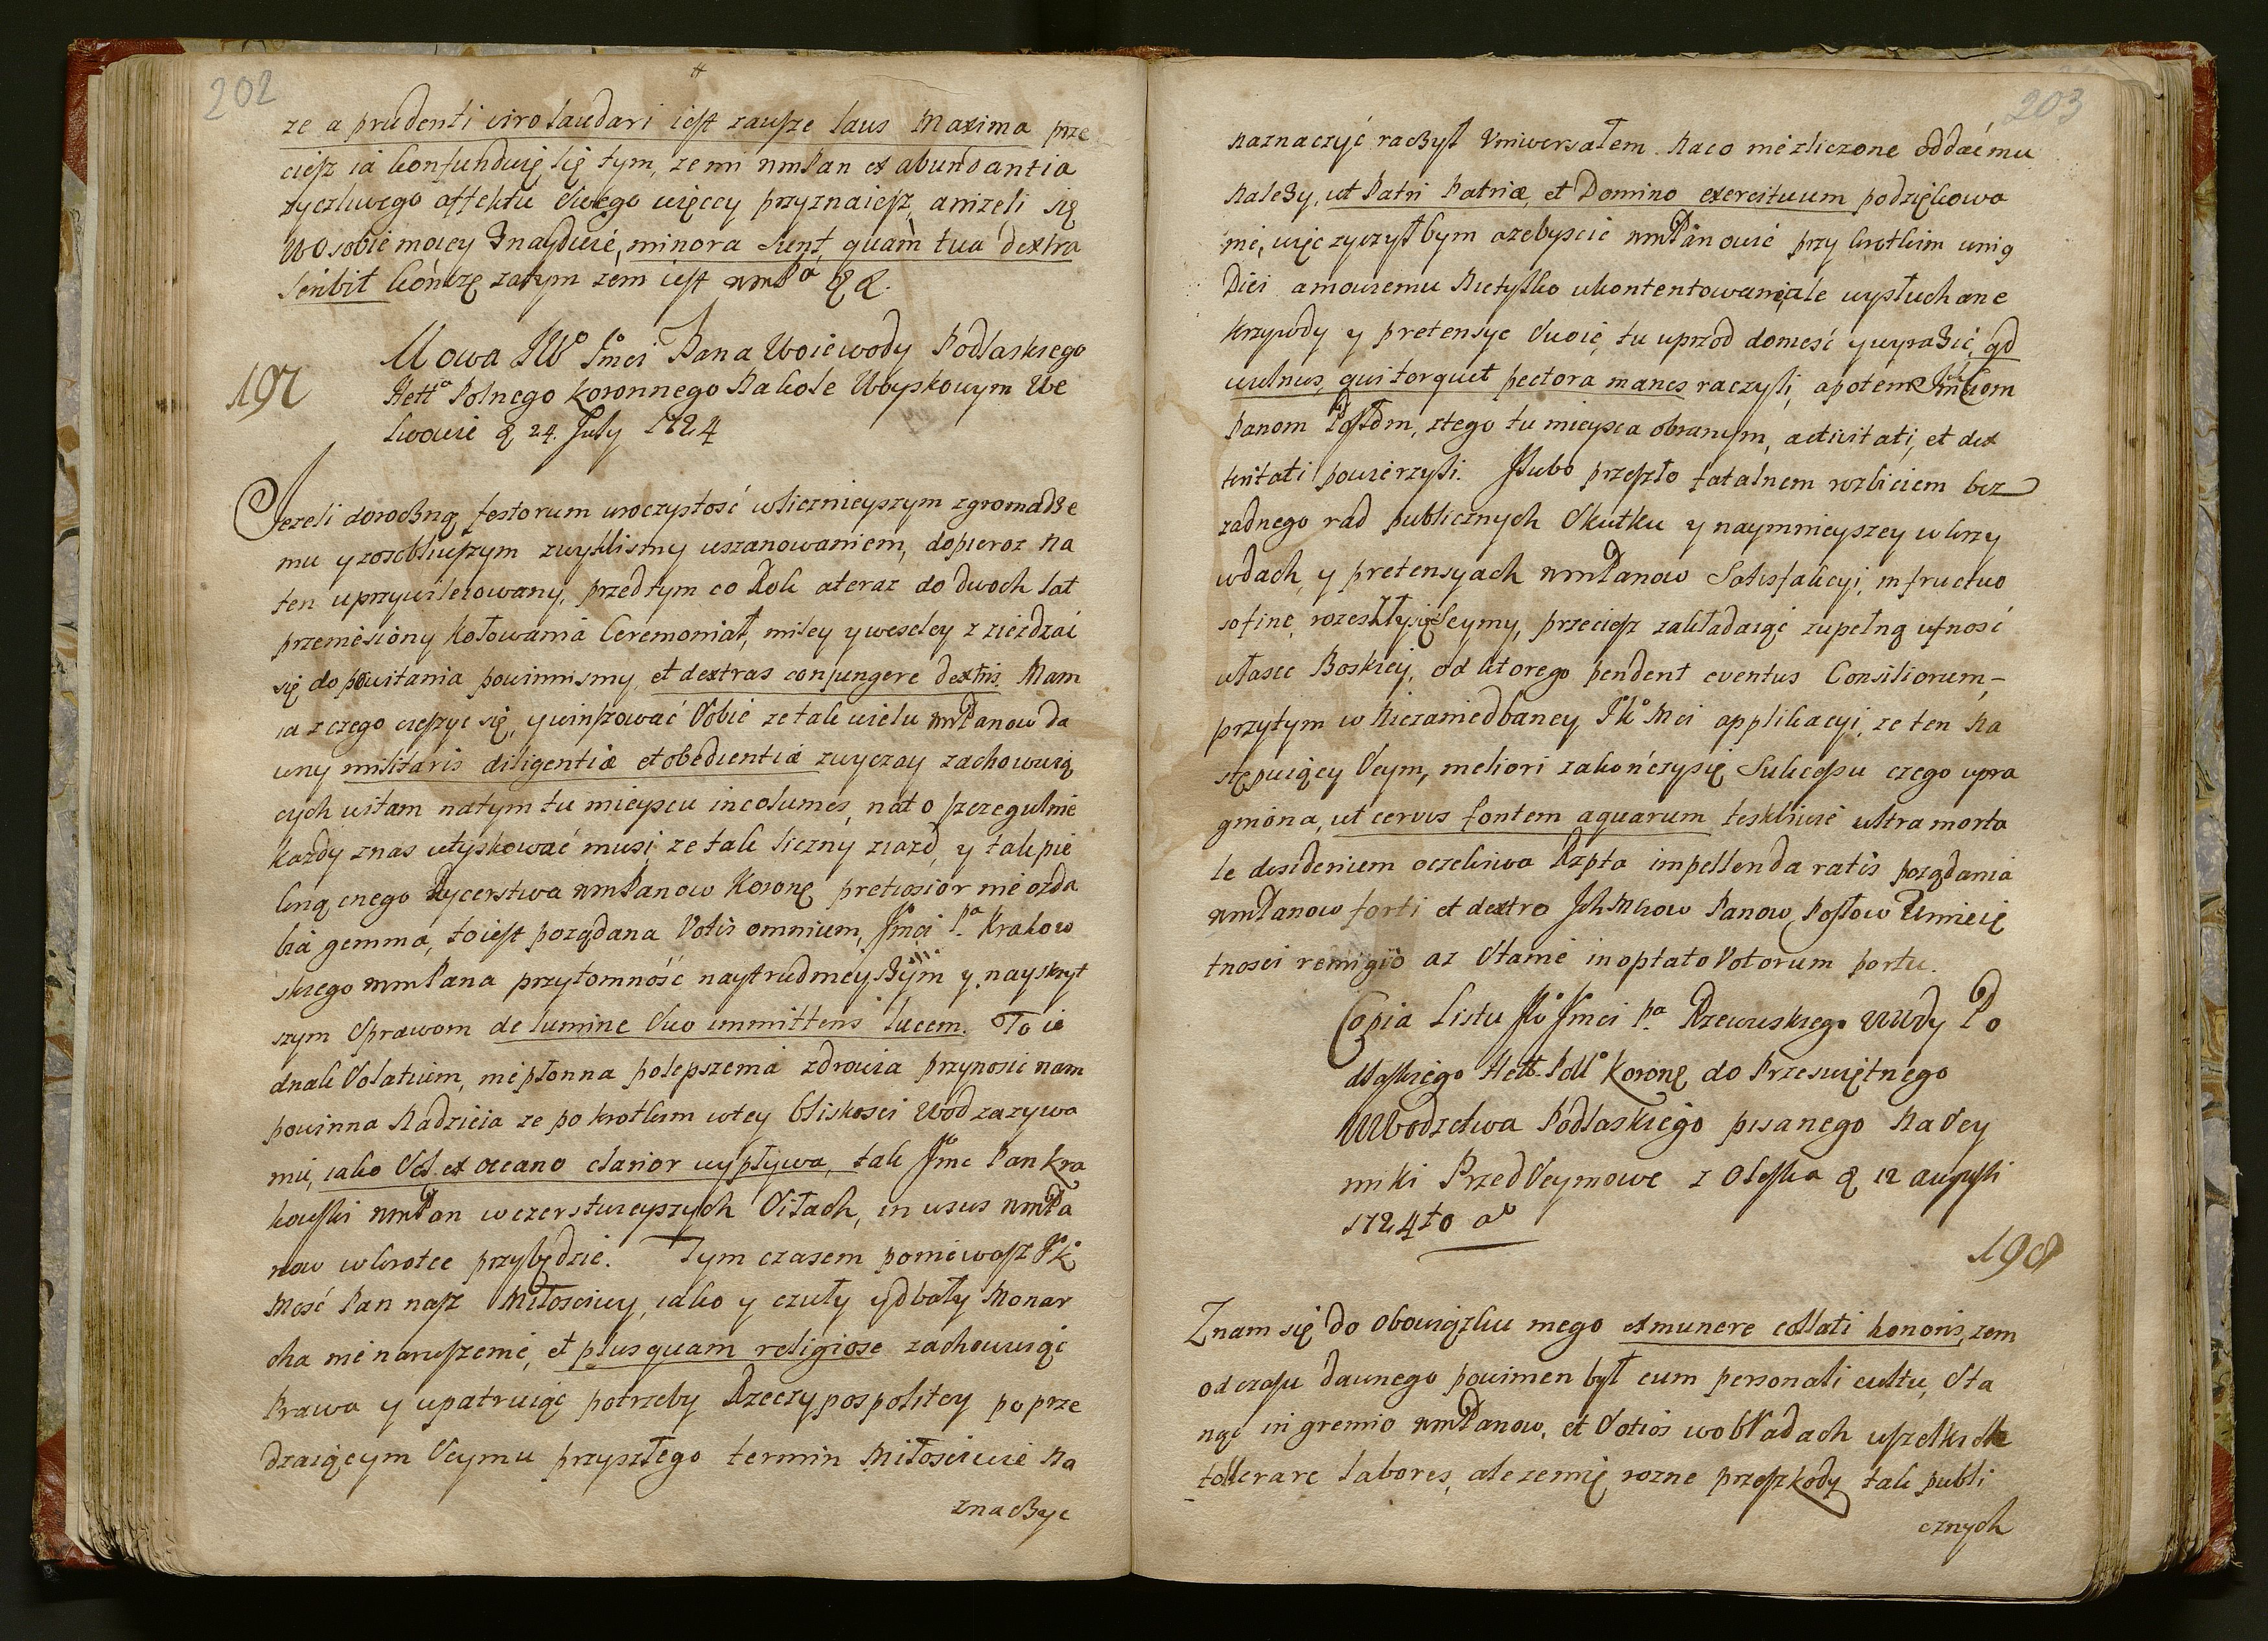 202
ze a prudenti viro laudari iest zausze laus Maxima prze
ciesz ia konfunduię się tym, ze mi wmPan ex abundantia
zyczliwego affektu Swego więcey przyznaiesz, anizeli się
W osobie moiey Znayduie, minora sunt, quam tua dextra
scribit kończę zatym zem iest wmPa &c.
197
Mowa JW° Jmci Pana Woiewody Podlaskiego
Hettª Polnego Koronnego Na kole Woyskowym We
Lwowie d. 24. July 1724
Jezeli doroczną festorum uroczystosć w licznieyszym zgromadze
niu y zosobliwszym zwyklismy uszanowaniem, dopieroz Na
ten uprzywileiowany, przedtym co Rok a teraz do dwoch lat
przeniesiony kołowania Ceremoniał, miley y weseley z ziezdzać
się do powitania powinnismy, et dextras conjungere dextris. Mam
ia z czego cieszyc się, y winszować Sobie ze tak wielu wmPanow da
wny militaris diligentiæ et obedientiæ zwyczay zachowuią
cych witam na tym tu mieyscu incolumes, na to szczegulnie
kazdy znas utyskować musi, ze tak liczny ziazd, y tak pie
knq cnego Rycerstwa wmPanow Koronę pretiosior nie ozda
bia gemma, to iest pożądana Votis omnium, Jmci Pª Krakow
skiego wmPana przytomność naytrudnieyszym y nayskryt
szym Sprawom de lumine Suo immittens lucem. To ie
dnak Solatium, niepłonna polepszenia zdrowia przynosic nam
powinna Nadzieia ze po krotkim w tey bliskosci Wod zazywa
niu, iako Sol ex oceano clarior wypływa, tak Jmc Pan Kra
kowski wmPan w czerstwieyszych Siłach, in usus wmPa
now wkrotce przybędzie. Tym czasem poniewasz JK
Mość Pan nasz Miłosciwy, iako y czuły y dbały Monar
cha nienaruszenie, et plus quam religiose zachowuiąc
Prawa y upatruiąc potrzeby Rzeczypospolitey poprze
dzaiącym Seymu przyszłego termin Miłosciwie Na
znaczyc
203
naznaczyć raczył Vniwersałem. Na co niezliczone oddać mu
Nalezy, ut Patri Patriæ, et Domino exercituum podziękowa
nie, więc zyczył bym azebyscie wmPanowie przy krotkim unią
Dici amowiemu Nietylko ukontentowanie, ale wysłuchane
krzywdy y pretensye Swoie, tu uprzod donieść y wyrazić, qd
vulnus, qui torquet pectora manes raczyli, a potem Jmciom
Panom Posłom, ztego tu mieysca obranym, activitati, et dex
teritati powierzyli. Lubo przeszło fatalnem rozbiciem bez
zadnego rad publicznych Skutku y naymnieyszey w krzy
wdach, y pretensyach wmPanow Satisfakcyi, infructuo
so fine, rozeszły się Seymy, przeciesz zakładaiąc zupełną ufność
w łasce Boskiey, od ktorego pendent eventus Consiliorum,
przytym w Niezaniedbaney JK° Mci applikacyi, ze ten Na
stępuiący Seym, meliori zakończy się Sukcessu czego upra
gniona, ut cervus fontem aquarum teskliwie ultra morta
le desiderium oczekiwa Rzpta impellenda ratis pożądania
wmPanow forti et dextro JchMciow Panow Posłow Umieię
tnosci remigio az Stanie in optato Votorum portu.
Copia Listu JW° Jmci Pª Rzewuskiego WWdy Po
dlaskiego Hett. Poll° Koronę do Przeswiętnego
WWodztwa Podlaskiego pisanego Na Sey
miki PrzedSeymowe z Oleska d. 12 Augusti
1724to a°
198
Znam się do obowiązku mego ex munere collati honoris, zem
od czasu dawnego powinien był cum personali cultu, Sta
nąć in gremio wmPanow, et Sotios w obradach wszelkich
tollerare labores, ale ze mię rozne przeszkody tak publi
cznych